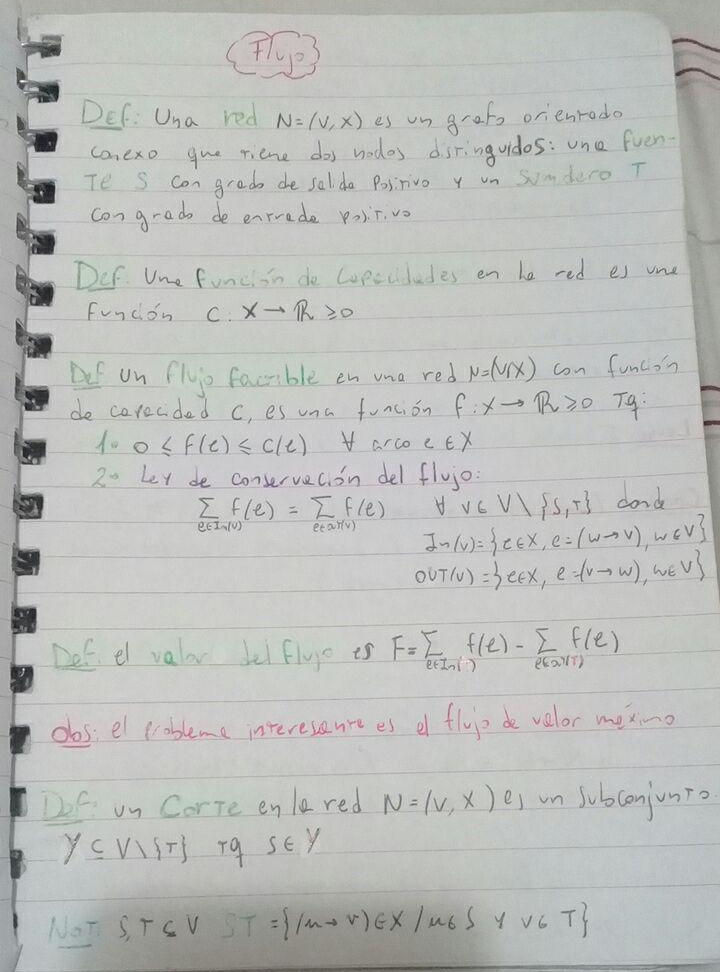 Flujo
Def: Una red N=(V,X) es un grafo orientado
conexo que tiene dos nodos distinguidos: una fuen-
te S con grado de salida positivo y un sumidero T
con grado de entrada positivo
Def. Una función de capacidades en la red es una
función c: X → ℝ ≥0
Def un flujo factible en una red N=(V,X) con función
de capacidad c, es una función f: X → ℝ ≥0 Tq:
1- 0 ≤ f(e) ≤ c(e) ∀ arco e ∈ X
2- Ley de conservación del flujo:
∑ f(e) = ∑ f(e) ∀ v ∈ V \ {S,T} donde
e∈In(v) e∈out(v)
In(v) = {e∈X, e=(w→v), w∈V}
OUT(v) = {e∈X, e=(v→w), w∈V}
Def. el valor del flujo es F= ∑ f(e) - ∑ f(e)
e∈In(T) e∈out(T)
obs: el problema interesante es el flujo de valor máximo
Def: un Corte en la red N=(V,X) es un subconjunto
Y ⊆ V\{T} Tq S∈Y
Not: S,T ⊆ V ST = {(u→v)∈X / u∈S y v∈T}